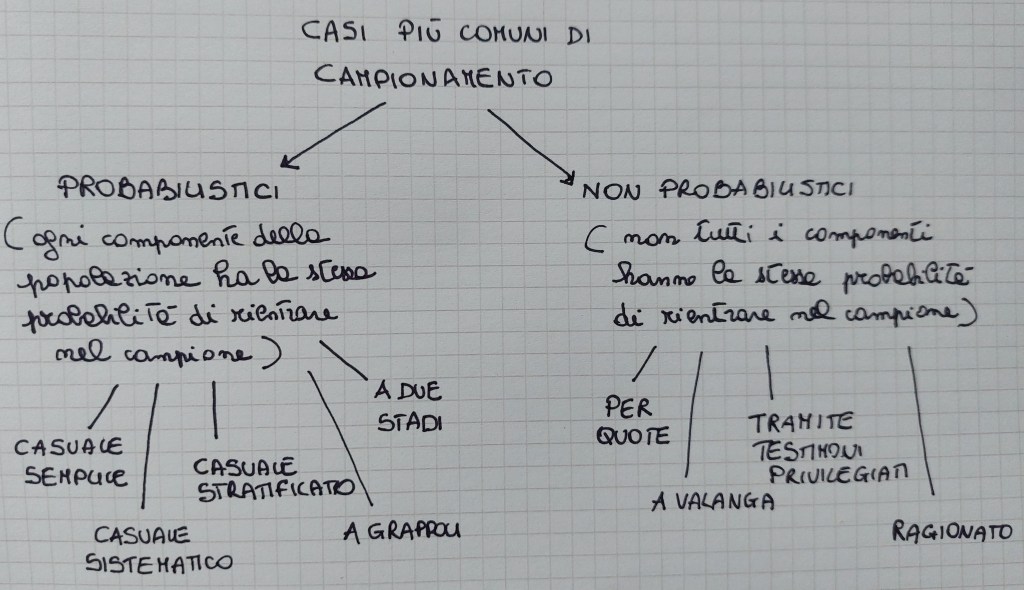 CASI PIÙ COMUNI DI
CAMPIONAMENTO
PROBABILISTICI
(ogni componente della
popolazione ha la stessa
probabilità di rientrare
nel campione)
CASUALE
SEMPLICE
CASUALE
SISTEMATICO
CASUALE
STRATIFICATO
A GRAPPOLI
A DUE
STADI
NON PROBABILISTICI
(non tutti i componenti
hanno la stessa probabilità
di rientrare nel campione)
PER
QUOTE
A VALANGA
TRAMITE
TESTIMONI
PRIVILEGIATI
RAGIONATO